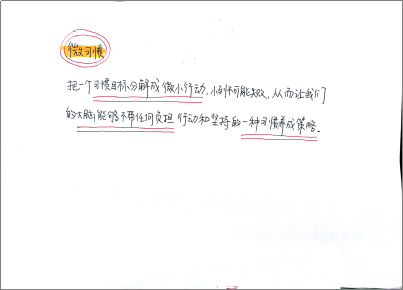 微习惯
把一个习惯目标分解成微小行动，小到不可能失败，从而让我们
的大脑能够不带任何负担行动和坚持的一种习惯养成策略．